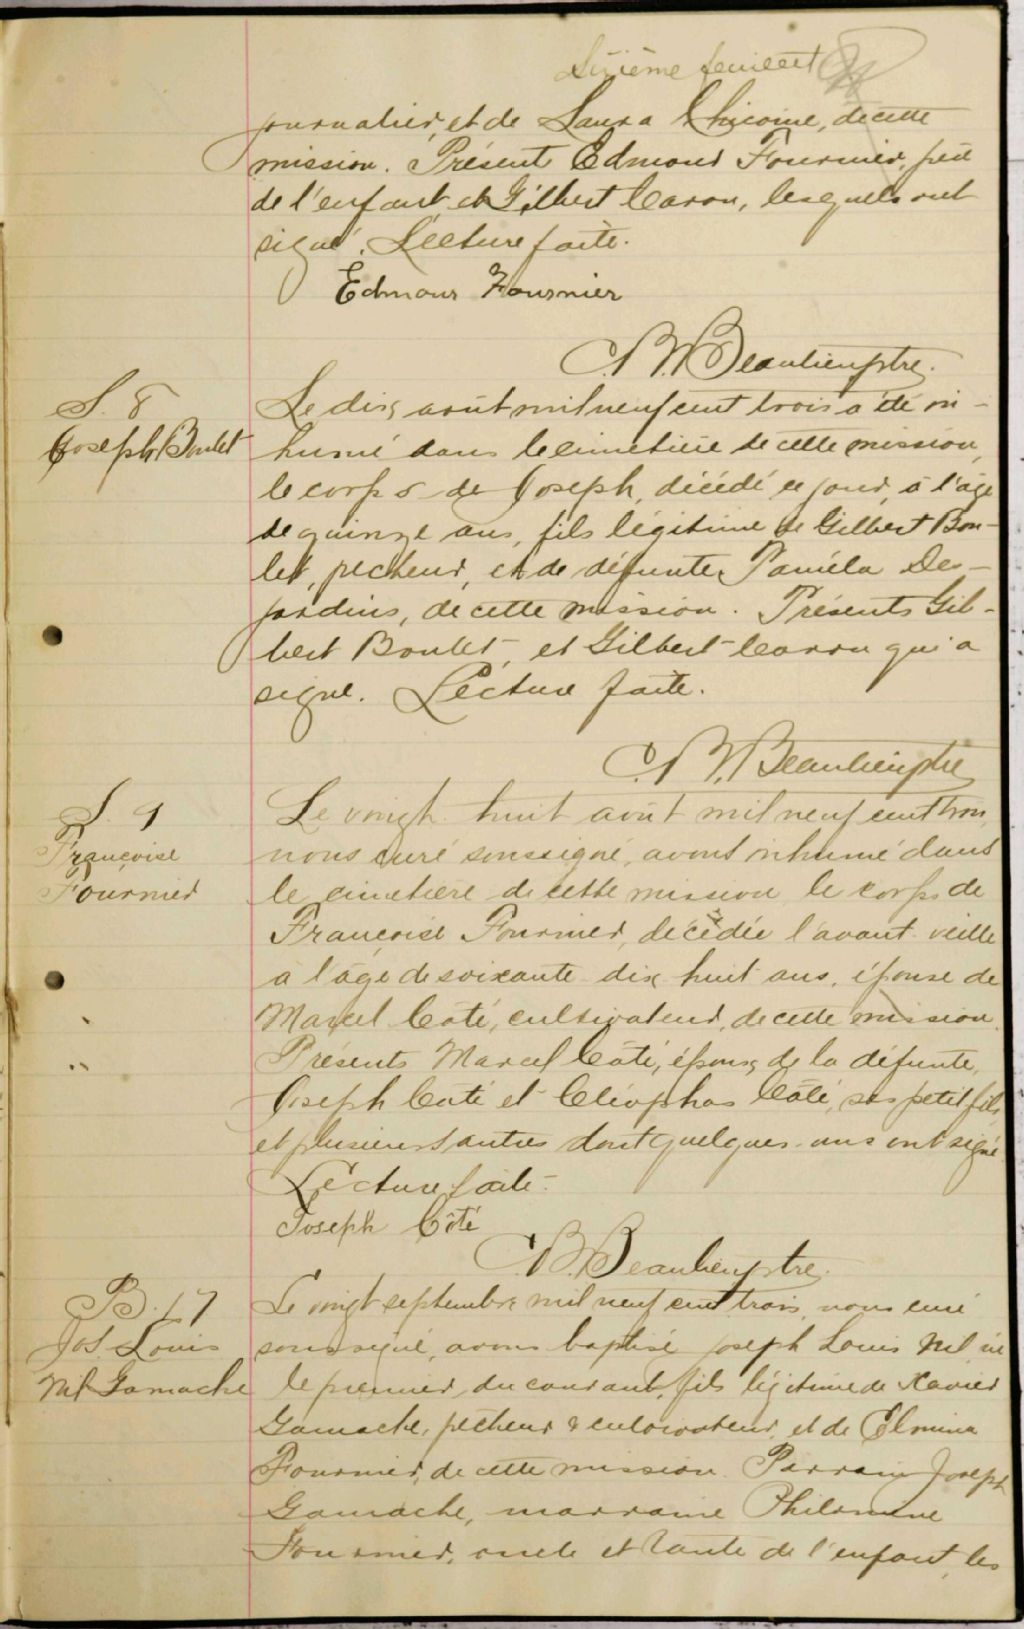 Sixième feuillet
journalier, et de Laura Chicoine, de cette
mission. Présents Edmond Fournier, père
de l'enfant et Gilbert Caron, lesquels ont
signé. Lecture faite.
Edmour Fournier
Beaulieu ptre.
S. 8
Joseph Boulet
Le dix août mil neuf cent trois a été in-
humé dans le cimetière de cette mission,
le corps de Joseph, décédé ce jour, à l'âge
de quinze ans, fils légitime de Gilbert Bou-
let, pêcheur, et de défunte Paméla Des-
jardins, de cette mission. Présents Gil-
bert Boulet et Gilbert Caron qui a
signé. Lecture faite.
Beaulieu ptre
S. 9
Françoise
Fournier
Le vingt huit août mil neuf cent trois,
nous curé soussigné, avons inhumé dans
le cimetière de cette mission le corps de
Françoise Fournier, décédée l'avant veille
à l'âge de soixante dix huit ans, épouse de
Marcel Côté, cultivateur, de cette mission.
Présents Marcel Côté, époux de la défunte,
Joseph Côté et Cléophas Côté, ses petit fils
et plusieurs autres dont quelques-uns ont signé
Lecture faite.
Joseph Côté
Beaulieu ptre.
B. 17
Jos. Louis
Nil Gamache
Le vingt septembre mil neuf cent trois, nous curé
soussigné, avons baptisé Joseph Louis Nil, né
le premier du courant, fils légitime de Xavier
Gamache, pêcheur & cultivateur, et de Elmina
Fournier, de cette mission. Parrain Joseph
Gamache, marraine Philomène
Fournier, oncle et tante de l'enfant, les